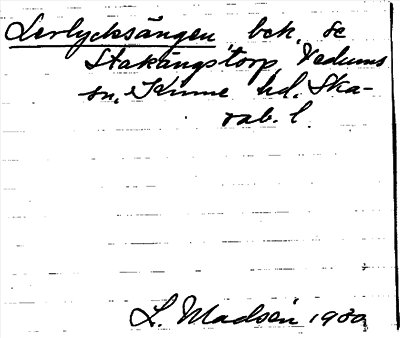 Lerlycksängen bck, se
Stakängstorp, Vedums
sn, Kinne hd. Ska-
rab. l.
L. Madsén 1930